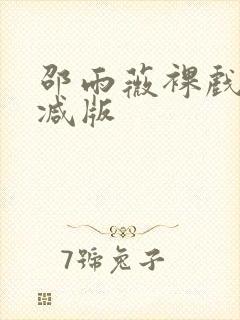 邵雨薇裸戲
减版
7號兔子